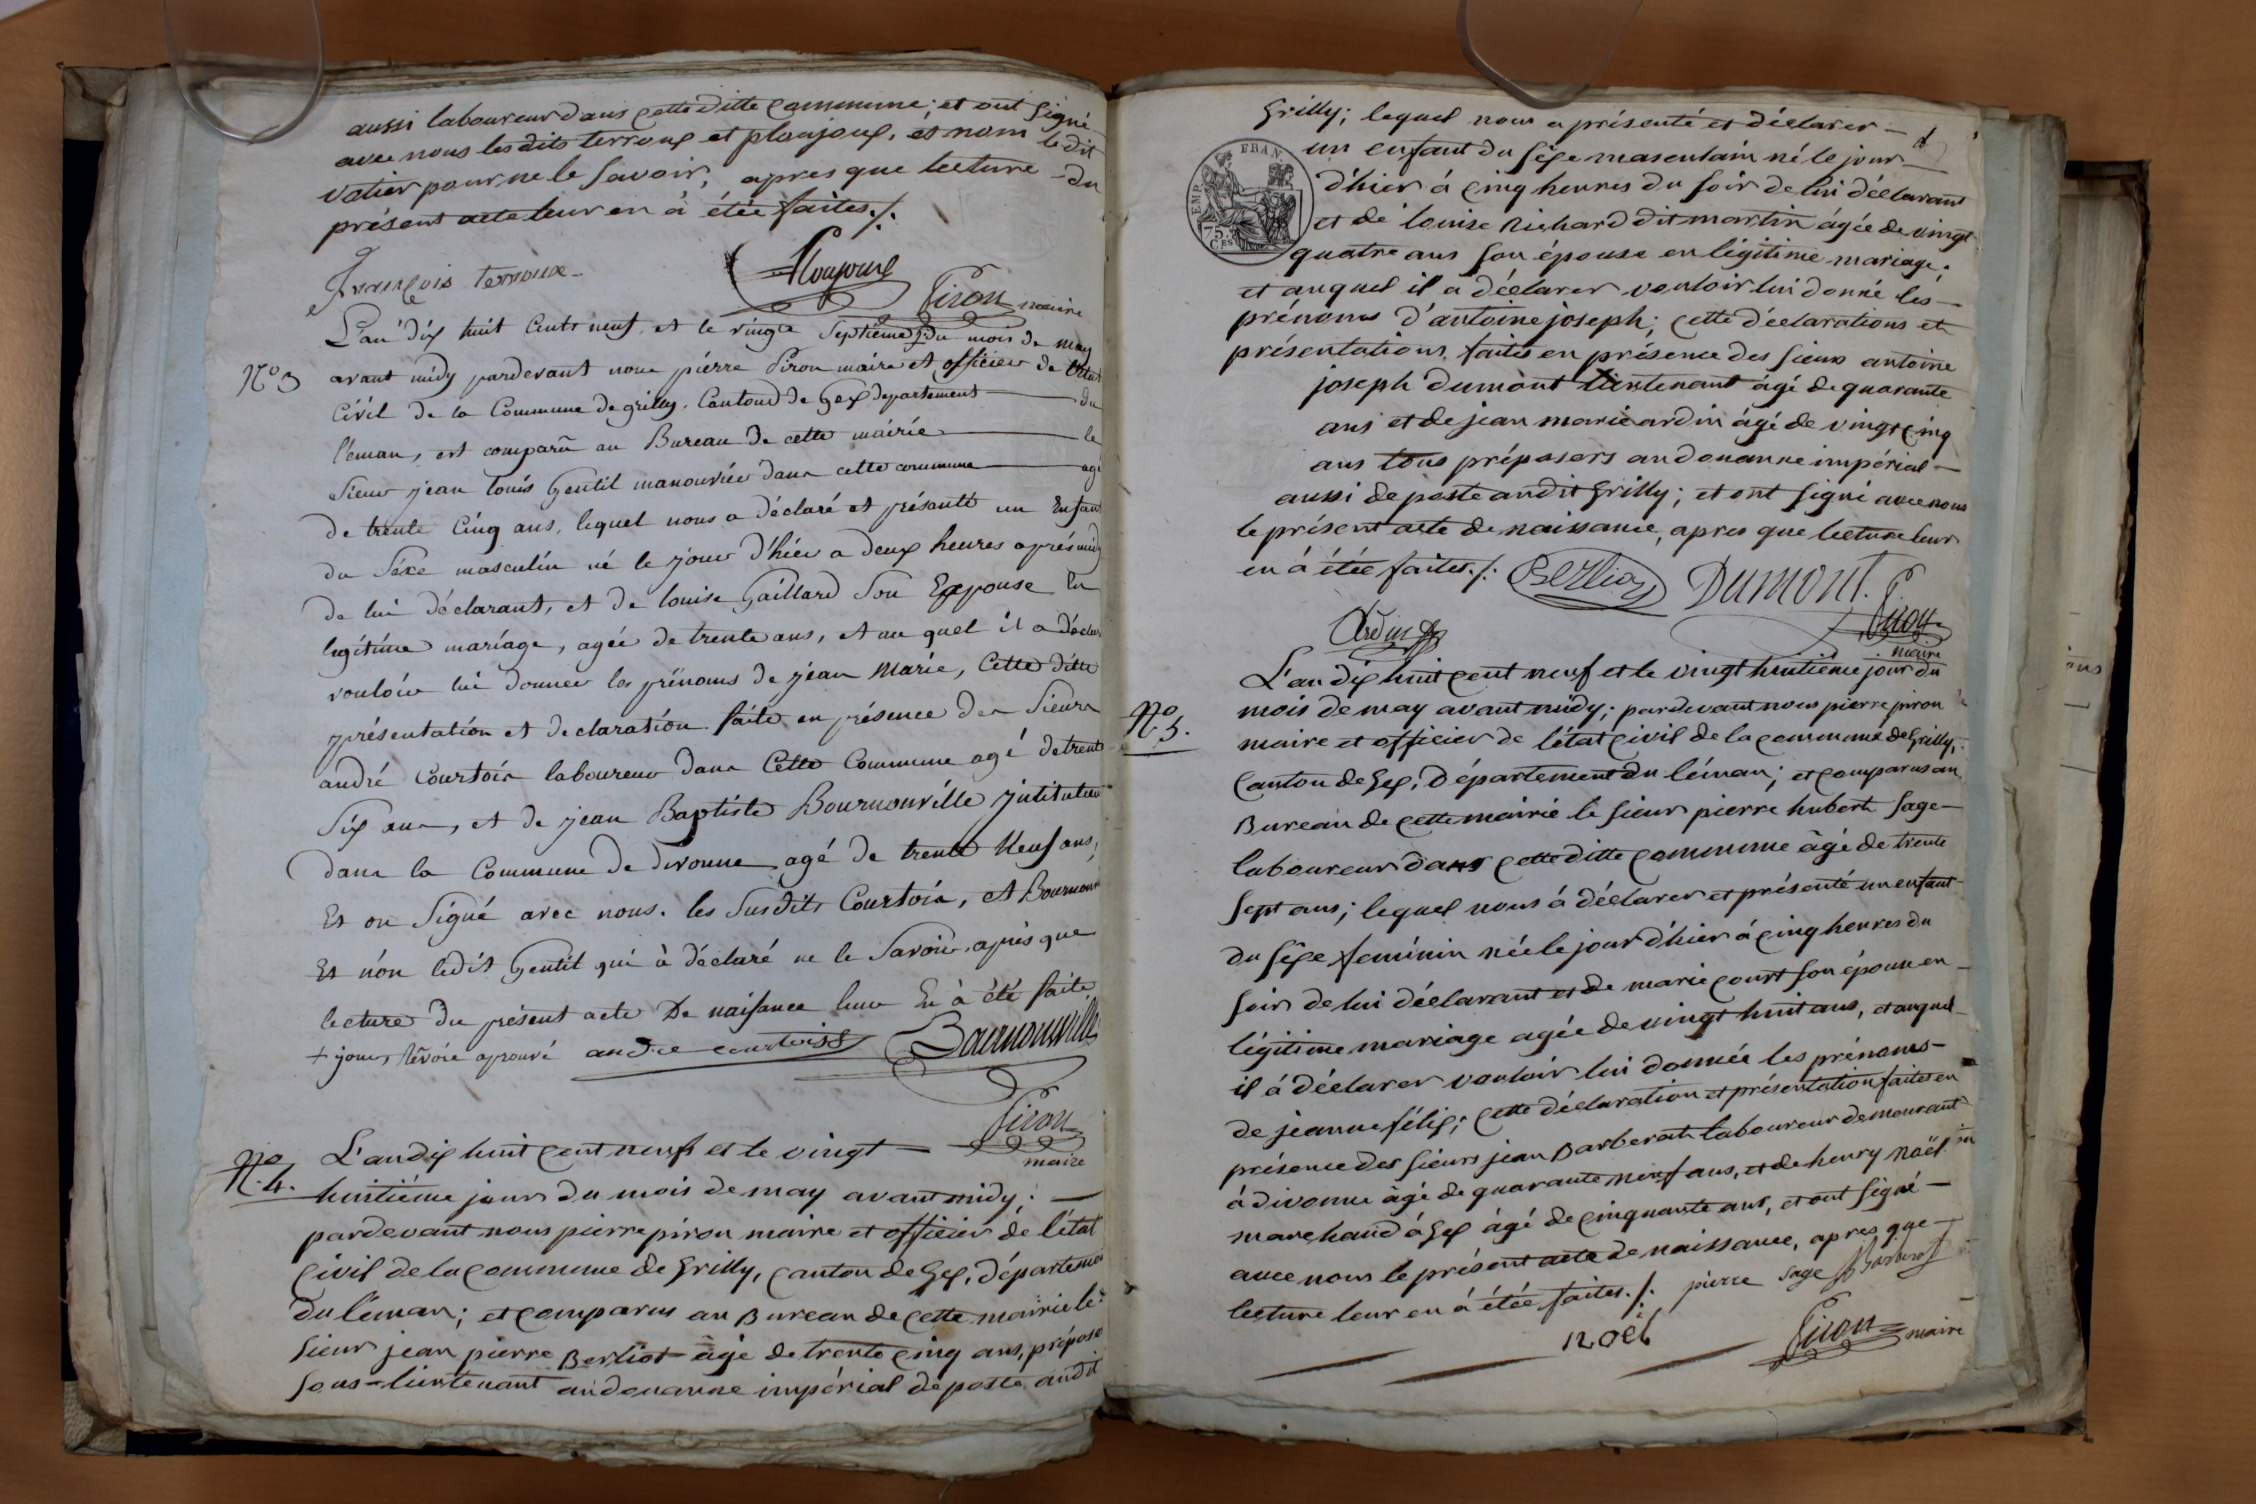 aussi laboureur dans cette ditte commune; et ont signé
avec nous lesdits terroux et ploujoux, et nom ledit
votier pour ne le savoir, apres que lecture du
présent acte leur en à étée faites ./.
François terroux
Ploujoux
Piron maire
N° 3
L'an dix huit Cents neuf, et le vingt Septieme + du mois de may
avant midy pardevant nous piérre Piron maire et officier de l'état
Civil de la Commune de grilly, Cantond de Gex departement du
léman, est comparû au Bureau de cette mairie le
Sieur jean louis Gentil manouvrier dans cette commune agé
de trente Cinq ans, lequel nous a déclaré et présanté un Enfant
du Séxe masculin né le jour d'hier a deux heures aprés midy
de lui déclarant, et de louise Gaillard Son Epouse En
legitime mariage, agée de trente ans, et au quel il a déclaré
vouloir lui donner les prénoms de jean Marie, Cette ditte
présentation et declaration faite en présence des Sieurs
andré Courtois laboureur dans Cette Commune agé de trente
Six ans, et de jean Baptiste Bournonville jnstituteur
dans la Commune de divonne agé de trente Neuf ans,
Et on Signé avec nous. les Susdits Courtois, et Bournonville
Et nón ledit Gentil qui à déclaré ne le Savoir. aprés que
lecture du présent acte De naissance leur En à été faite
+ jour, renvoie aprouvé
andre courtoiss
Bournonville
Piron
maire
N° 4.
L'an dix huit cent neuf et le vingt
huitiéme jour du mois de may avant midy;
pardevant nous pierre piron maire et officier de l'état
Civil de la commune de Grilly, canton de Gex, départemen
du léman; et comparus au Bureau de cette mairie le
Sieur jean pierre Berliot âgé de trente cinq ans, préposé
sous-lieutenant au douanne impérial de poste audit
Grilly; lequel nous a présenté et déclarer
un enfant du séxe masculain né le jour
EMP. FRAN.
75.
C.ES
d'hier à cinq heures du soir de lui déclarant
et de louise Richard dit martin âgée de vingt
quatre ans son épouse en légitime mariage;
et auquel il a déclarer vouloir lui donné les
prénoms d'antoine joseph; cette déclarations et
présentations faites en présence des sieurs antoine
joseph dumont lieutenant âgé de quarante
ans et de jean marie ardin âgé de vingt cinq
ans tous préposers au douanne impérial
aussi de poste audit Grilly; et ont signé avec nous
le présent acte de naissance, apres que lecture leur
en à étée faites ./.
Berliot
Dumont.
Piron
maire
Ardin
N° 5.
L'an dix huit cent neuf et le vingt huitieme jour du
mois de may avant midy; pardevant nous pierre piron
maire et officier de l'état civil de la commune de Grilly,
Canton de Gex, Département du léman; et comparus au
Bureau de cette mairie le sieur pierre hubert sage
laboureur dans cette ditte commune âgé de trente
sept ans; lequel nous à déclarer et présenté un enfant
du séxe feminin née le jour d'hier à cinq heures du
soir de lui déclarant et de marie court son épouse en
légitime mariage agée de vingt huit ans, et auquel
il à déclarer vouloir lui donnée les prénoms
de jeanne félix; cette déclaration et présentation faites en
présence des sieurs jean Barberat laboureur demeurant
à divonne âgé de quarante neuf ans, et de henry Noël
marchand à Gex âgé de cinquante ans, et ont signé
avec nous le présent acte de naissance, apres que
lecture leur en à étée faites ./.
pierre sage
Barberat
noel
Piron maire